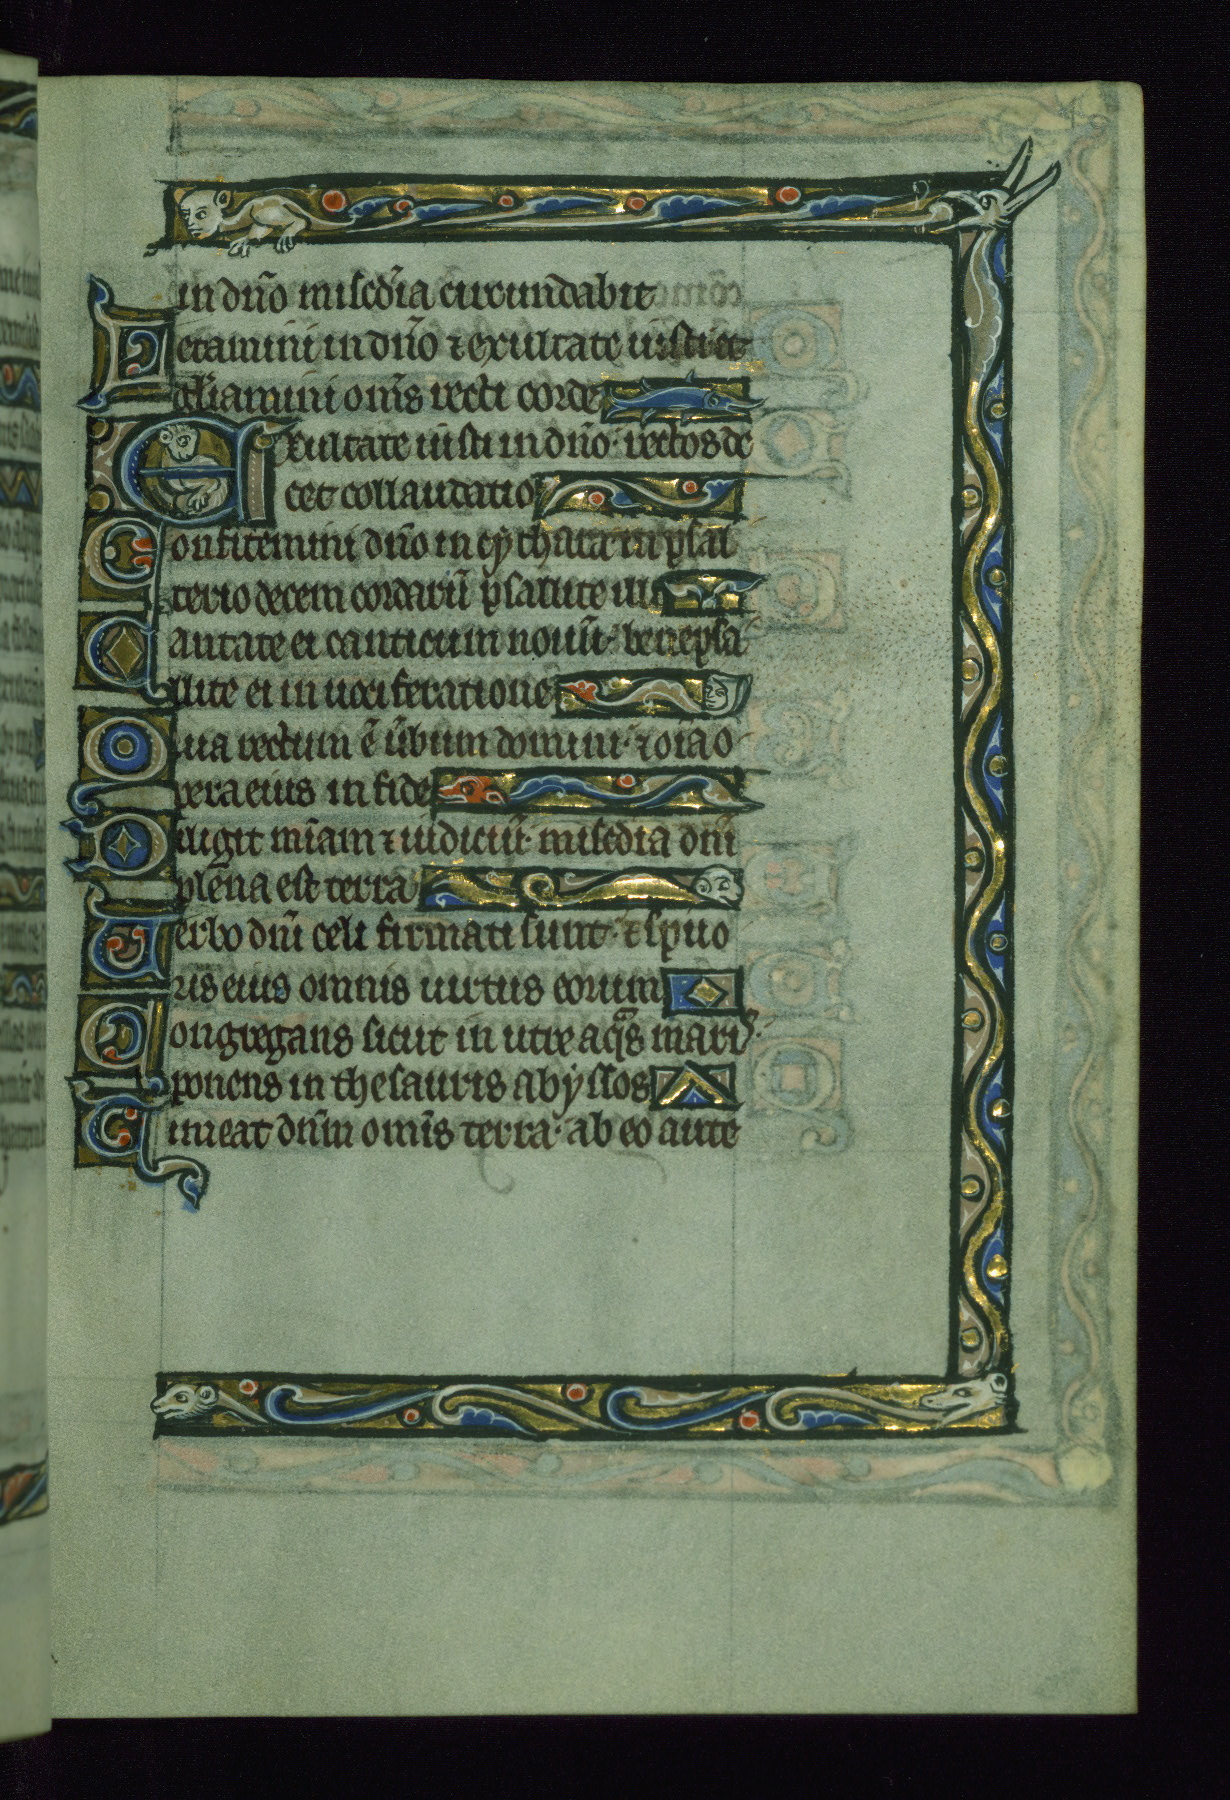 in dño misc̃dia circundabit
Letamini in dño ⁊ exultate iusti et
gl̃iamini om̃s recti corde
Exultate iusti in dño· rectos de
cet collaudatio
Confitemini dño in cythara in psal
terio decem cordarũ psallite illi
Cantate ei canticum nouũ· bene psa
llite ei in uociferatione
Qua rectum ẽ ũbum domini· ⁊ oĩa o
pera eius in fide
Diligit mĩam ⁊ iudiciũ· misc̃dia dñi
plena est terra
Verbo dñi celi firmati sunt· ⁊ spũ o
ris eius omnis uirtus eorum
Congregans sicut in utre aquas maris·
ponens in thesauris abyssos
Timeat dñm om̃is terra· ab eo aute